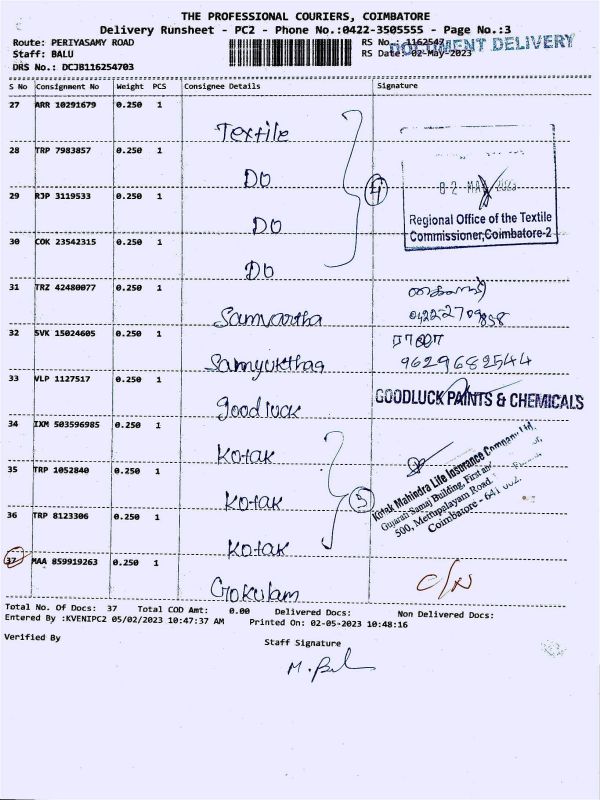 THE PROFESSIONAL COURIERS, COIMBATORE
Delivery Runsheet - PC2 - Phone No.:0422-3505555 - Page No.:3
Route: PERIYASAMY ROAD RS No.: 1162547
DOCUMENT DELIVERY
Staff: BALU RS Date: 02-May-2023
DRS No.: DCJB116254703
S No Consignment No Weight PCS Consignee Details Signature
27 ARR 10291679 0.250 1 Textile
28 TRP 7983857 0.250 1 DO
29 RJP 3119533 0.250 1 DO
30 COK 23542315 0.250 1 DO
4
02 MAY 2023
Regional Office of the Textile
Commissioner,Coimbatore-2
31 TRZ 42480077 0.250 1 Samvartha
0422-2709858
32 SVK 15024605 0.250 1 Samyuktha
9629682544
33 VLP 1127517 0.250 1 Goodluck
GOODLUCK PAINTS & CHEMICALS
34 IXM 503596985 0.250 1 Kotak
35 TRP 1052840 0.250 1 Kotak
36 TRP 8123306 0.250 1 Kotak
Kotak Mahindra Life Insurance Company Ltd.
Gujarati Samaj Building, First
500, Mettupalayam Road,
Coimbatore - 641 002.
37 MAA 859919263 0.250 1 Gokulam
C/N
Total No. Of Docs: 37 Total COD Amt: 0.00 Delivered Docs: Non Delivered Docs:
Entered By :KVENIPC2 05/02/2023 10:47:37 AM Printed On: 02-05-2023 10:48:16
Verified By Staff Signature